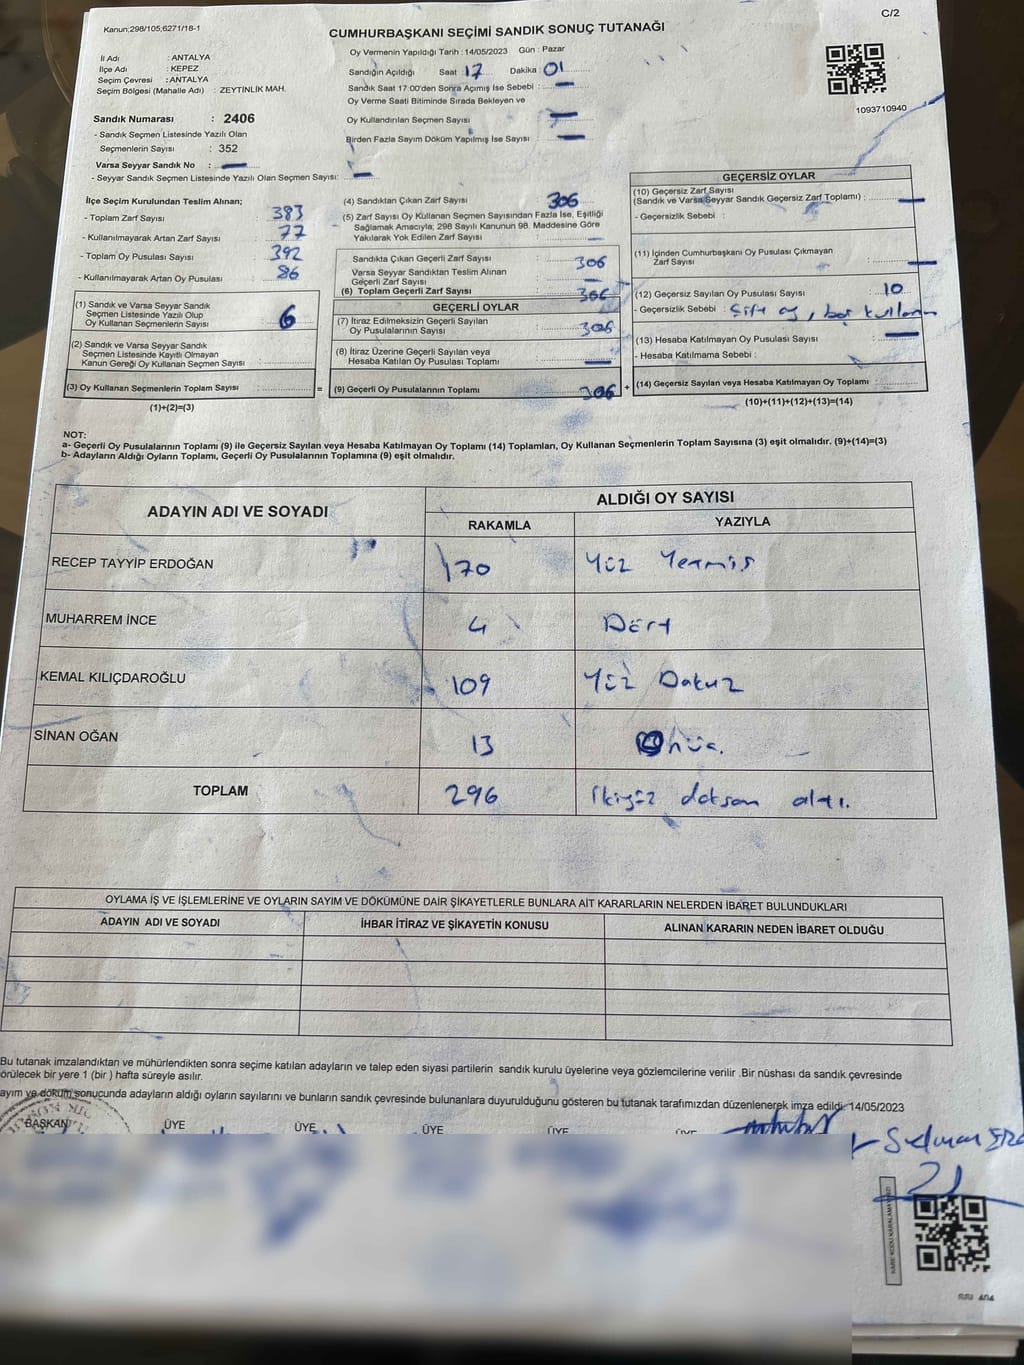 Kanun;298/105;6271/18-1
C/2
CUMHURBAŞKANI SEÇİMİ SANDIK SONUÇ TUTANAĞI
İl Adı : ANTALYA
İlçe Adı : KEPEZ
Seçim Çevresi : ANTALYA
Seçim Bölgesi (Mahalle Adı) : ZEYTİNLİK MAH.
Sandık Numarası : 2406
- Sandık Seçmen Listesinde Yazılı Olan
Seçmenlerin Sayısı : 352
Varsa Seyyar Sandık No : —
- Seyyar Sandık Seçmen Listesinde Yazılı Olan Seçmen Sayısı: —
Oy Vermenin Yapıldığı Tarih : 14/05/2023 Gün : Pazar
Sandığın Açıldığı Saat 17 Dakika 01
Sandık Saat 17:00'den Sonra Açımış İse Sebebi : —
Oy Verme Saati Bitiminde Sırada Bekleyen ve
Oy Kullandırılan Seçmen Sayısı : —
Birden Fazla Sayım Döküm Yapılmış İse Sayısı : —
1093710940
İlçe Seçim Kurulundan Teslim Alınan;
- Toplam Zarf Sayısı : 383
- Kullanılmayarak Artan Zarf Sayısı : 77
- Toplam Oy Pusulası Sayısı : 392
- Kullanılmayarak Artan Oy Pusulası : 86
(1) Sandık ve Varsa Seyyar Sandık
Seçmen Listesinde Yazılı Olup
Oy Kullanan Seçmenlerin Sayısı : 6
(2) Sandık ve Varsa Seyyar Sandık
Seçmen Listesinde Kayıtlı Olmayan
Kanun Gereği Oy Kullanan Seçmen Sayısı :
(3) Oy Kullanan Seçmenlerin Toplam Sayısı : =
(1)+(2)=(3)
(4) Sandıktan Çıkan Zarf Sayısı : 306
(5) Zarf Sayısı Oy Kullanan Seçmen Sayısından Fazla İse, Eşitliği
Sağlamak Amacıyla; 298 Sayılı Kanunun 98. Maddesine Göre
Yakılarak Yok Edilen Zarf Sayısı : —
Sandıkta Çıkan Geçerli Zarf Sayısı : 306
Varsa Seyyar Sandıktan Teslim Alınan
Geçerli Zarf Sayısı : —
(6) Toplam Geçerli Zarf Sayısı : 306
GEÇERLİ OYLAR
(7) İtiraz Edilmeksizin Geçerli Sayılan
Oy Pusulalarının Sayısı : 306
(8) İtiraz Üzerine Geçerli Sayılan veya
Hesaba Katılan Oy Pusulası Toplamı : —
(9) Geçerli Oy Pusulalarının Toplamı : 306 +
GEÇERSİZ OYLAR
(10) Geçersiz Zarf Sayısı
(Sandık ve Varsa Seyyar Sandık Geçersiz Zarf Toplamı) : —
- Geçersizlik Sebebi :
(11) İçinden Cumhurbaşkanı Oy Pusulası Çıkmayan
Zarf Sayısı : —
(12) Geçersiz Sayılan Oy Pusulası Sayısı : 10
- Geçersizlik Sebebi : Çift oy, boş
(13) Hesaba Katılmayan Oy Pusulası Sayısı : —
- Hesaba Katılmama Sebebi :
(14) Geçersiz Sayılan veya Hesaba Katılmayan Oy Toplamı :
(10)+(11)+(12)+(13)=(14)
NOT:
a- Geçerli Oy Pusulalarının Toplamı (9) ile Geçersiz Sayılan veya Hesaba Katılmayan Oy Toplamı (14) Toplamları, Oy Kullanan Seçmenlerin Toplam Sayısına (3) eşit olmalıdır. (9)+(14)=(3)
b- Adayların Aldığı Oyların Toplamı, Geçerli Oy Pusulalarının Toplamına (9) eşit olmalıdır.
ADAYIN ADI VE SOYADI ALDIĞI OY SAYISI
RAKAMLA YAZIYLA
RECEP TAYYİP ERDOĞAN 170 Yüz Yetmiş
MUHARREM İNCE 4 Dört
KEMAL KILIÇDAROĞLU 109 Yüz Dokuz
SİNAN OĞAN 13 Onüç.
TOPLAM 296 İkiyüz doksan altı.
OYLAMA İŞ VE İŞLEMLERİNE VE OYLARIN SAYIM VE DÖKÜMÜNE DAİR ŞİKAYETLERLE BUNLARA AİT KARARLARIN NELERDEN İBARET BULUNDUKLARI
ADAYIN ADI VE SOYADI İHBAR İTİRAZ VE ŞİKAYETİN KONUSU ALINAN KARARIN NEDEN İBARET OLDUĞU
Bu tutanak imzalandıktan ve mühürlendikten sonra seçime katılan adayların ve talep eden siyasi partilerin sandık kurulu üyelerine veya gözlemcilerine verilir .Bir nüshası da sandık çevresinde
örülecek bir yere 1 (bir ) hafta süreyle asılır.
ayım ve döküm sonucunda adayların aldığı oyların sayılarını ve bunların sandık çevresinde bulunanlara duyurulduğunu gösteren bu tutanak tarafımızdan düzenlenerek imza edildi. 14/05/2023
BAŞKAN ÜYE ÜYE ÜYE ÜYE ÜYE
21